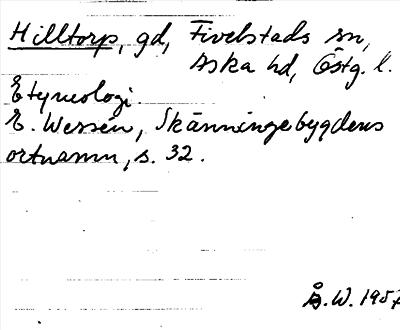 Hilltorp, gd, Fivelstads sn,
Aska hd, Östg. l.
Etymologi.
E. Wessén, Skänningebygdens
ortnamn, s. 32.
Å.W. 1957